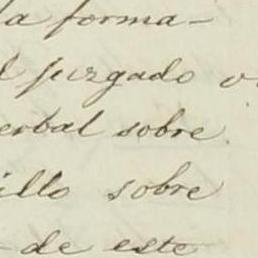 la forma-
l juzgado v
erbal sobre
illo sobre
- de este